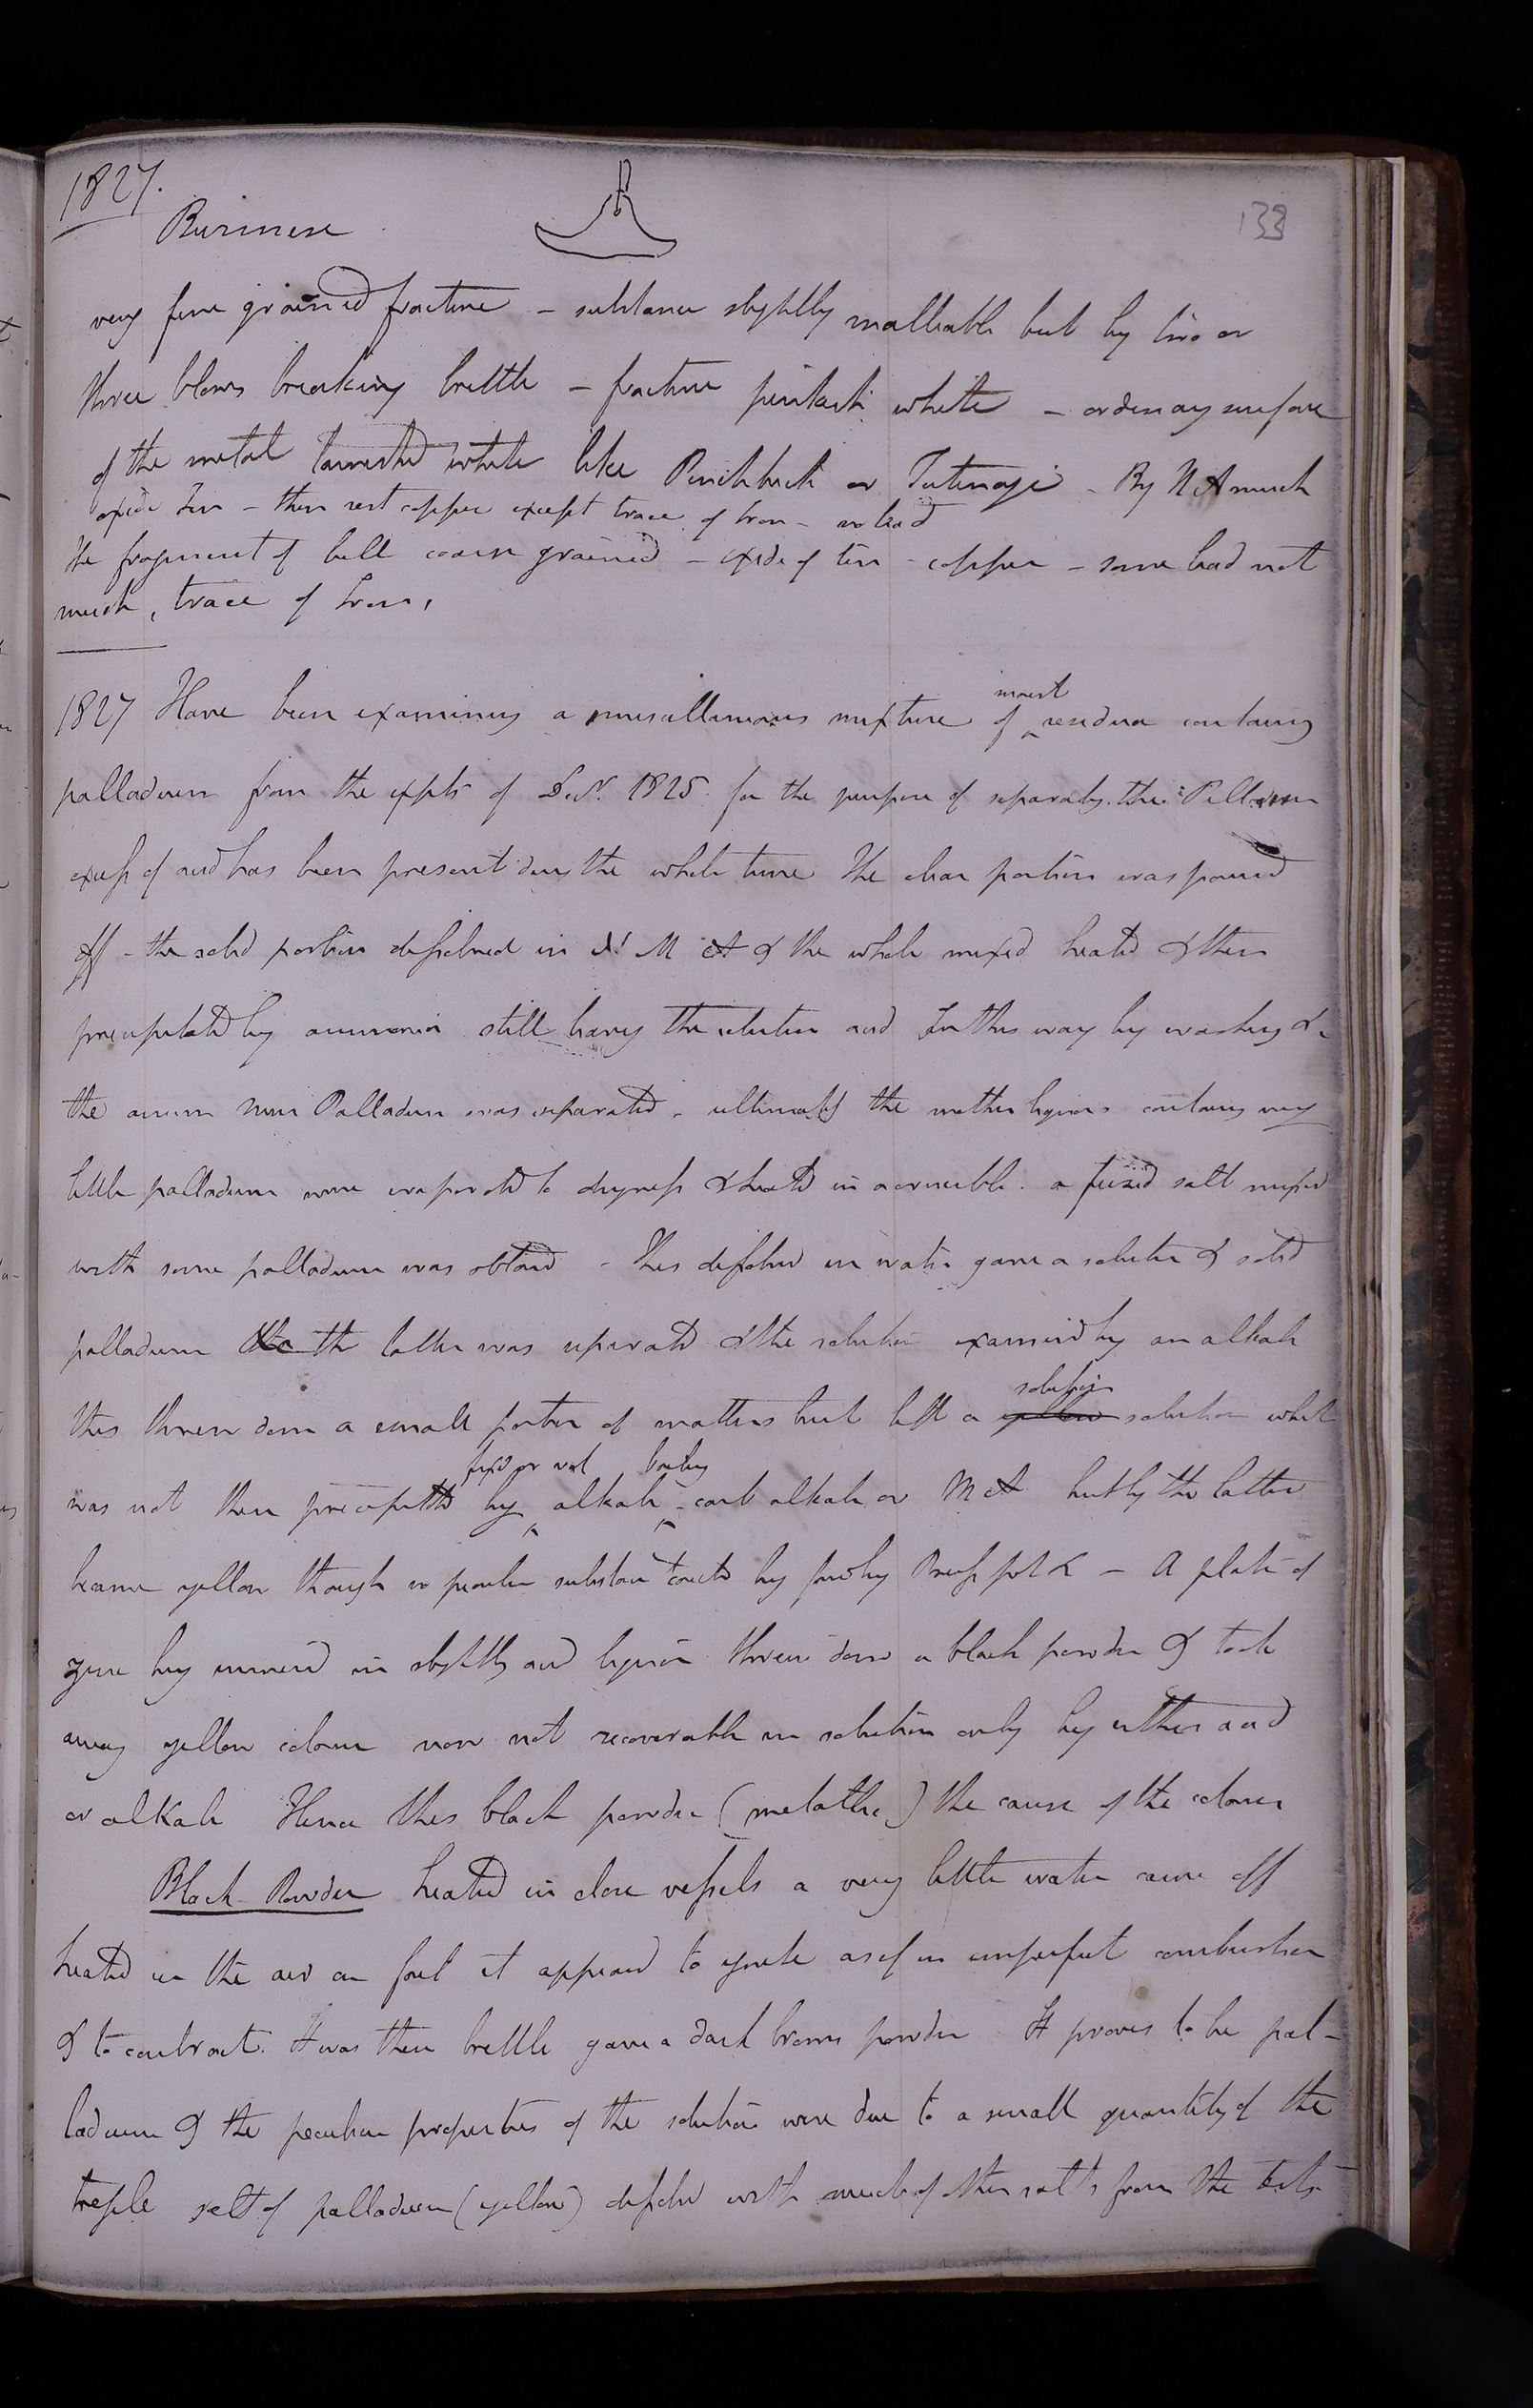 1827.
133
Burmese
very fine grained fracture - substance slightly malleable but by two or
three blows breaking brittle - fracture pinkish white - ordinary surface
of the metal tarnished white like Pinchbeck or Tutenage - By N A much
oxide Tin - then rest copper except trace of Iron - no lead
The fragment of bell coarse grained - oxide of tin - copper - some lead not
much, trace of Iron,
1827 Have been examining a miscellaneous mixture of moist residua containg
palladium from the expts of 1825 for the purpose of separatg the Palladium
excess of acid has been present durg the whole time The clear portion was poured
off - the solid portion dissolved in M A & the whole mixed heated & then
precipitated by ammonia still leavg the solution acid In this way by washing &c
the ammon Mur Palladium was separated - ultimately the mother liquors containg very
little palladium were evaporated to dryness & heated in a crucible. a fused salt mixed
with some palladium was obtaind - This dissolvd in water gave a solution & solid
palladium the latter was separated & the solution examined by an alkali
this threw down a small portion of matters but left a yellow solution solution which
was not then precipitated by fixd or vol alkali - boiling carb alkali or M A but by the latter
became yellow though no peculiar substance by Pruss pot &c - A plate of
zinc by immersd in slightly acid liquor threw down a black powder & took
away yellow colour now not recoverable in solution only by either acid
or alkali Hence this black powder (metallic) the cause of the colour
Black Powder heated in close vessels a very little water came off
heated in the air on foil it appeard to ignite as if in imperfect combustion
& to contract. It was then brittle gave a dark brown powder It proves to be pal-
ladium & the peculiar properties of the solution were due to a small quantity of the
triple salt of palladium (yellow) dissolvd with much of other salts from the